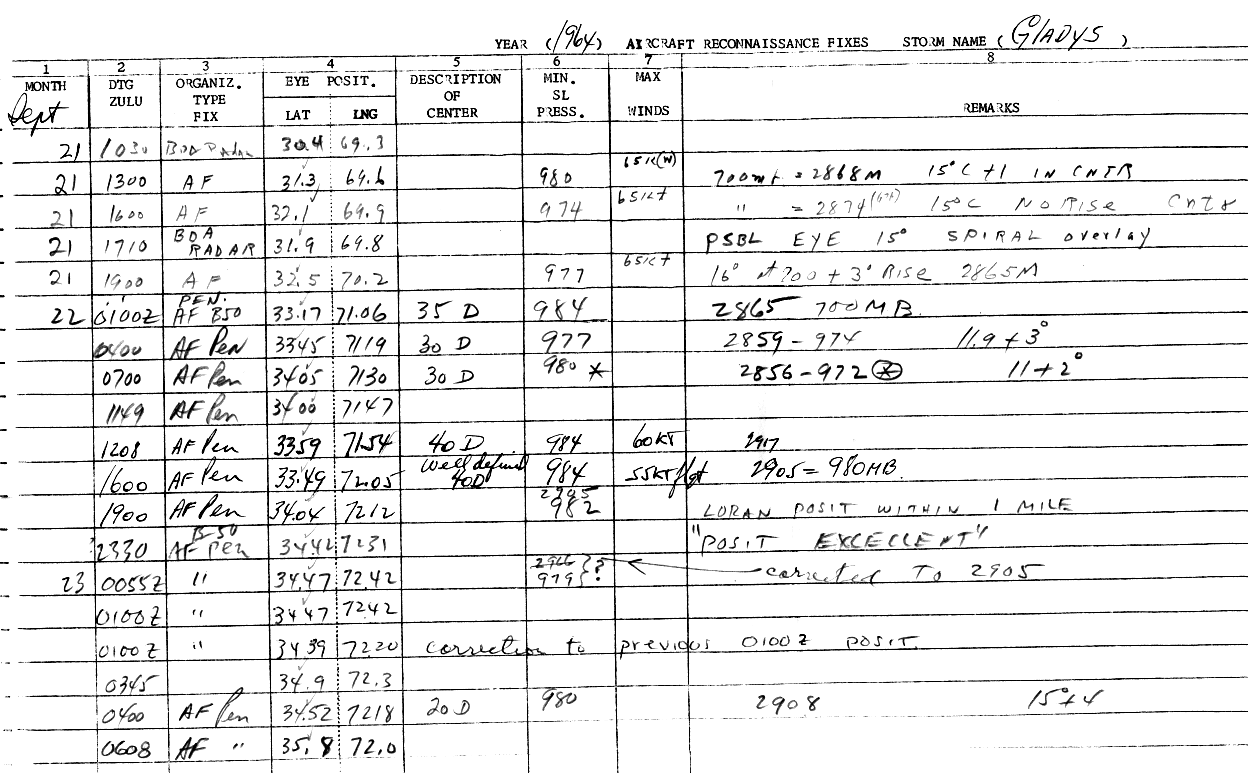 YEAR (1964) AIRCRAFT RECONNAISSANCE FIXES STORM NAME (GLADYS)
1 2 3 4 5 6 7 8
MONTH DTG ZULU ORGANIZ. TYPE FIX EYE POSIT. LAT LNG DESCRIPTION OF CENTER MIN. SL PRESS. MAX WINDS REMARKS
Sept
21 1030 BDA Radar 30.4 69.3
21 1300 AF 31.3 69.6 980 65K(W) 700mb = 2868M 15°C +1 IN CNTR
21 1600 AF 32.1 69.9 974 65Kt " = 2874 15°C No Rise Cntr
21 1710 BDA RADAR 31.9 69.8 PSBL EYE 15° SPIRAL overlay
21 1900 AF 32.5 70.2 977 65Kt 16° at 700 + 3° Rise 2865M
22 0100Z PEN. AF B50 33.17 71.06 35 D 984 2865 700MB
0400 AF Pen 3345 7119 30 D 977 2859 - 974 11.9 + 3°
0700 AF Pen 3405 7130 30 D 980 * 2856 - 972 * 11 + 2°
1149 AF Pen 3400 7147
1208 AF Pen 3359 7154 40 D 984 60KT 2917
1600 AF Pen 33.49 72.05 Well defined 40D 984 55KT flgt 2905 = 980MB
1900 AF Pen 34.04 7212 982 LORAN POSIT WITHIN 1 MILE
2330 B-50 AF Pen 3442 7231 "POSIT EXCELLENT"
23 0055Z " 34.47 72.42 979 }? corrected To 2905
0100Z " 34.47 7242
0100Z " 3439 7220 correction to previous 0100Z POSIT.
0345 34.9 72.3
0400 AF Pen 34.52 7218 20 D 980 2908 15° + 4
0608 AF " 35.8 72.0